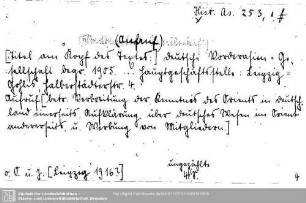 Hist. As. 253, 1 f
(Aufruf)
[Titel am Kopf des Textes:] Deutsch-Vorderasien-Ge-
sellschaft begr. 1905. ... Hauptgeschäftsstelle: Leipzig-
Gohlis, Halberstädterstr. 4.
Aufruf [betr. Verbreitung der Kenntnis des Orients in Deutsch-
land einerseits, Aufklärung über deutsches Wesen im Orient
andererseits, u. Werbung von Mitgliedern]
ungezählte
o. O. u. J. [Leipzig 1916?] 4